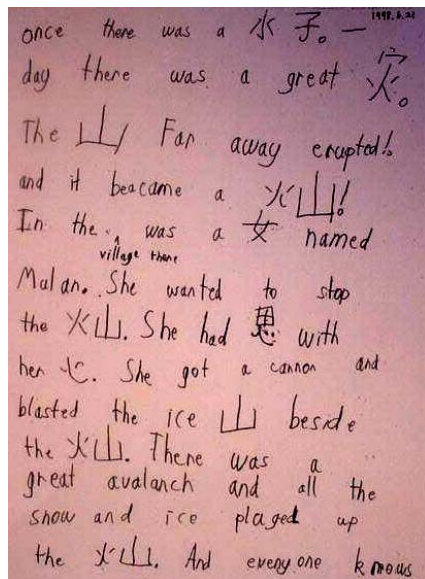 1998.6.21
once there was a 水 子。一
day there was a great 灾。
The 山 Far away erupted!
and it beacame a 火山!
In the village there was a 女 named
Mulan. She wanted to stop
the 火山. She had 思 with
her 心. She got a cannon and
blasted the ice 山 beside
the 火山. There was a
great avalanch and all the
snow and ice pluged up
the 火山. And every one knows